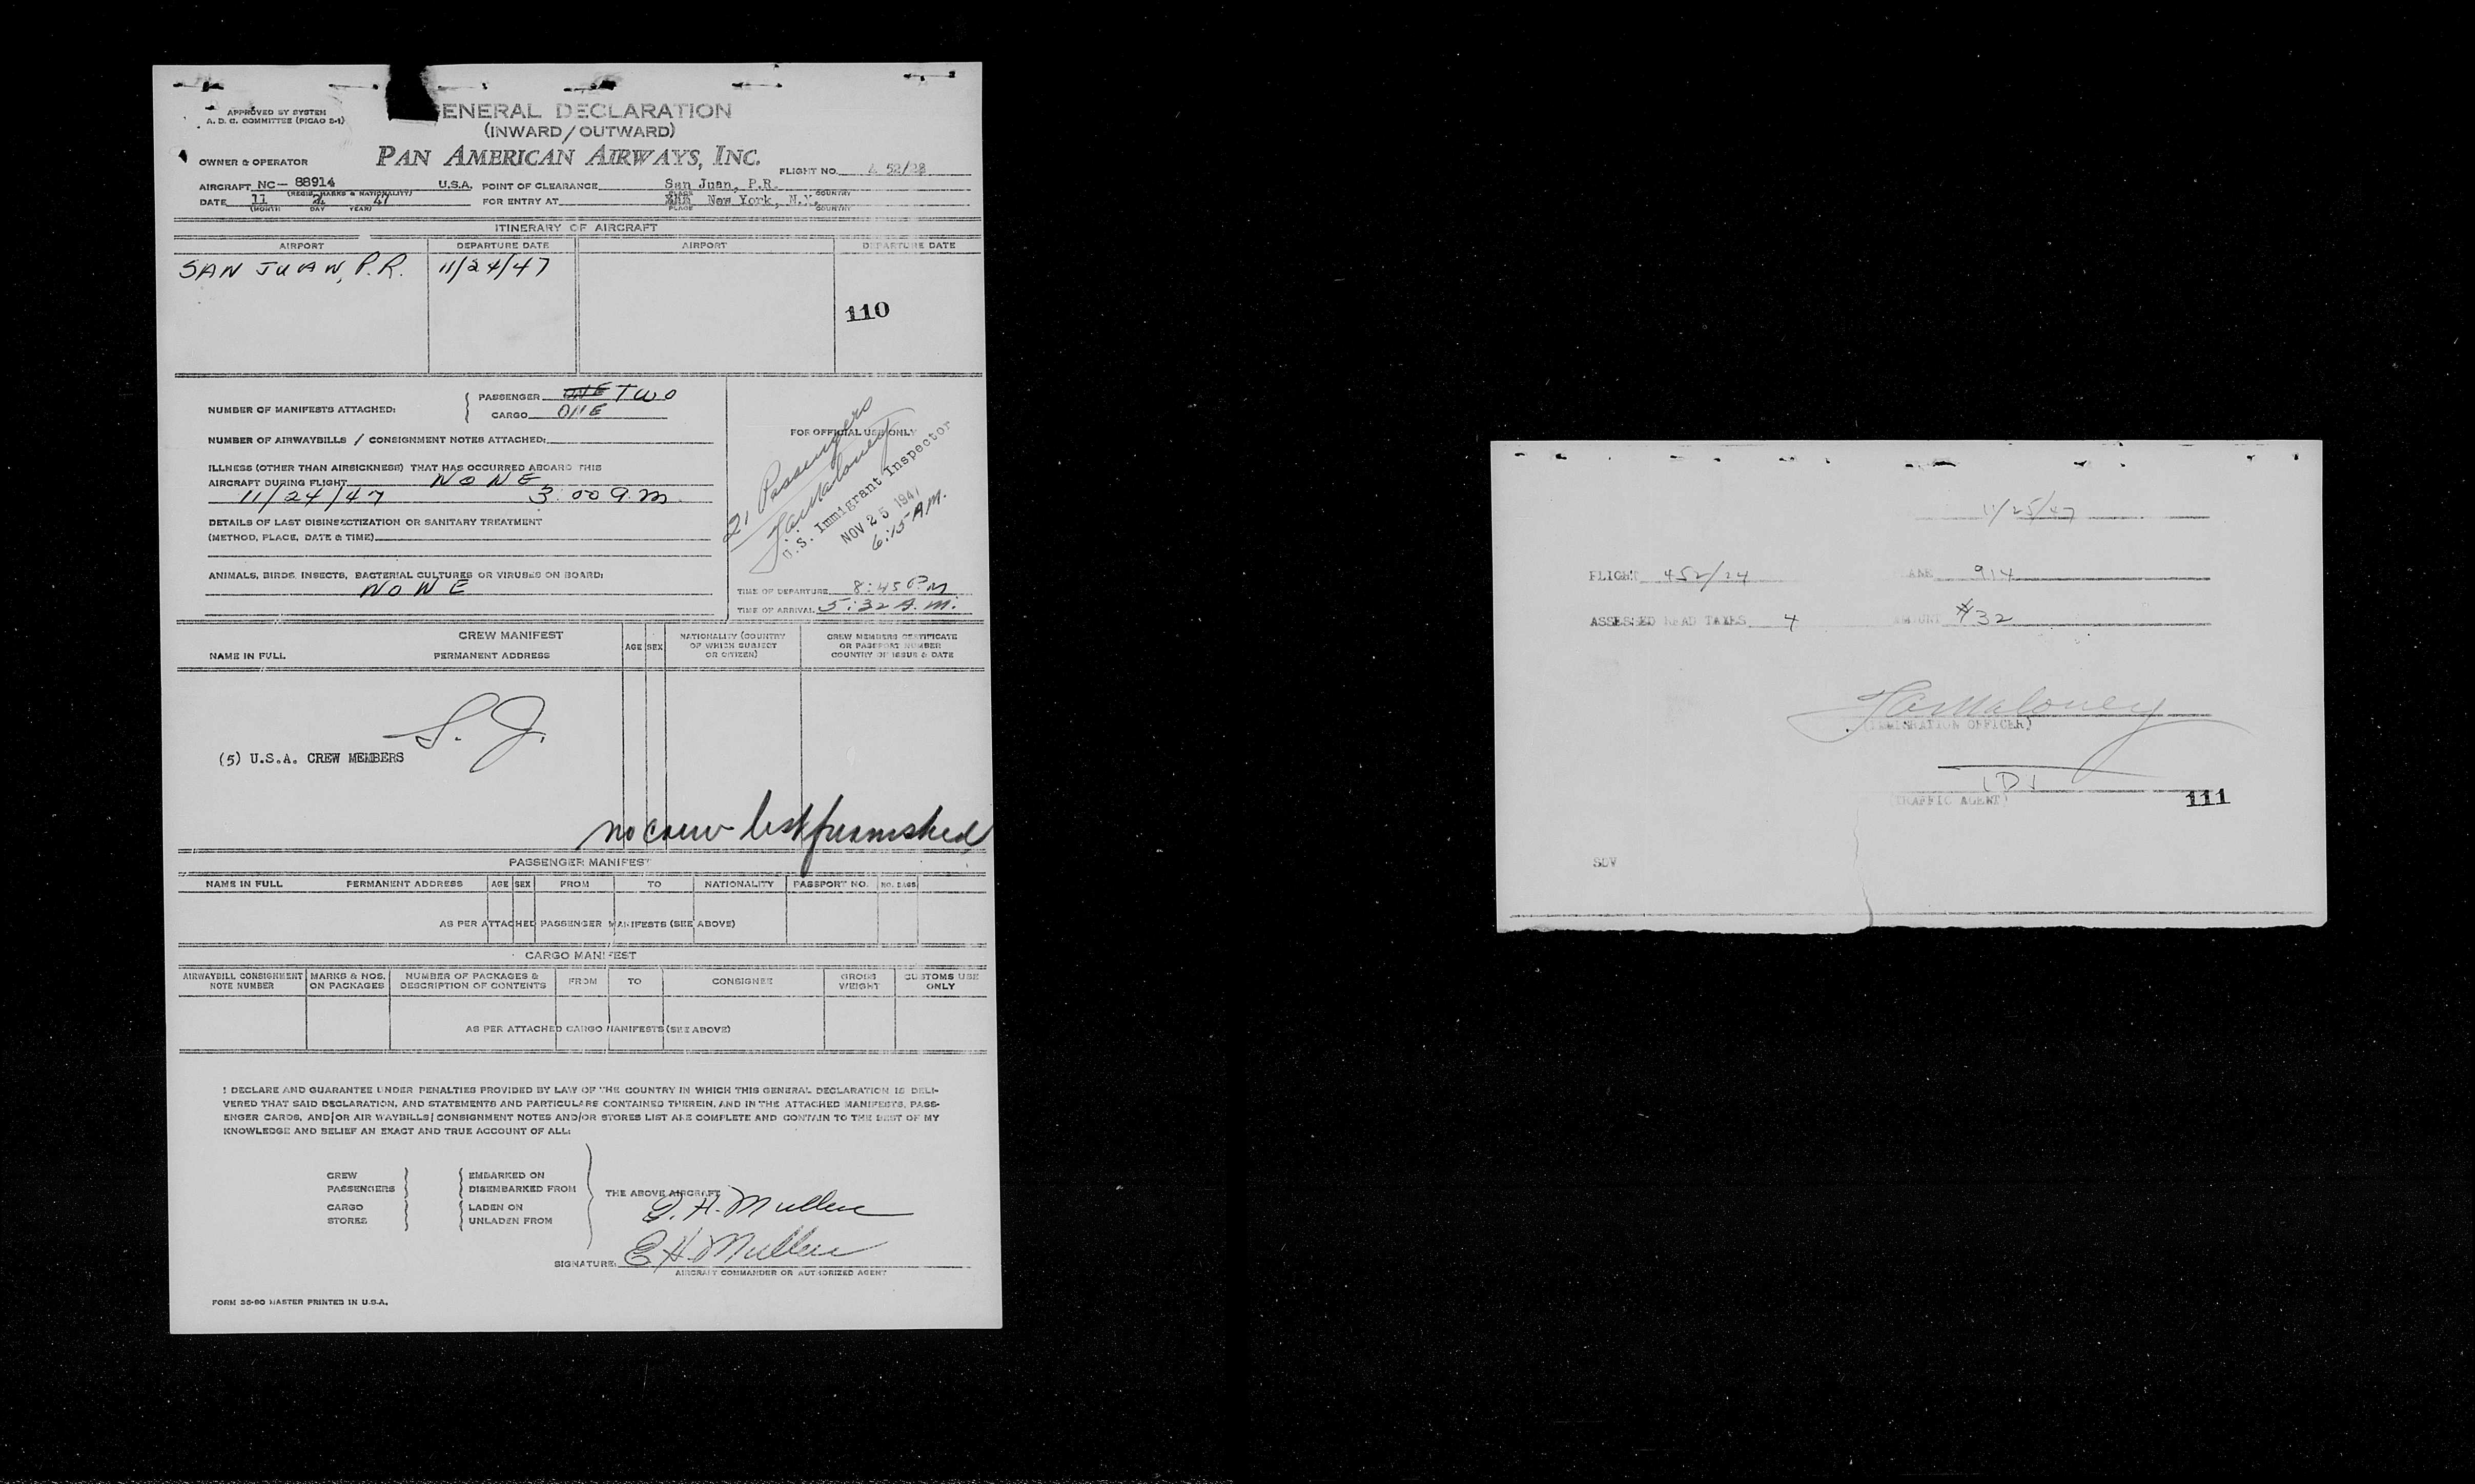 APPROVED BY SYSTEM
A. D. C. COMMITTEE (PICAO 2-1)
ENERAL DECLARATION
(INWARD/OUTWARD)
OWNER & OPERATOR
PAN AMERICAN AIRWAYS, INC.
FLIGHT NO. 52/
AIRCRAFT NC- 88914 U.S.A. POINT OF CLEARANCE San Juan, P.R.
(REGIS. MARKS & NATIONALITY) PLACE COUNTRY
DATE 11 47 FOR ENTRY AT New York, N.Y.
(MONTH DAY YEAR) PLACE COUNTRY
ITINERARY OF AIRCRAFT
AIRPORT DEPARTURE DATE AIRPORT DEPARTURE DATE
SAN JUAN, P.R. 11/24/47
110
NUMBER OF MANIFESTS ATTACHED: PASSENGER ONE TWO
CARGO ONE
NUMBER OF AIRWAYBILLS / CONSIGNMENT NOTES ATTACHED:
ILLNESS (OTHER THAN AIRSICKNESS) THAT HAS OCCURRED ABOARD THIS
AIRCRAFT DURING FLIGHT NONE
11/24/47 3:00
DETAILS OF LAST DISINSECTIZATION OR SANITARY TREATMENT
(METHOD, PLACE, DATE & TIME)
ANIMALS, BIRDS, INSECTS, BACTERIAL CULTURES OR VIRUSES ON BOARD:
NONE
FOR OFFICIAL USE ONLY
21 Passengers
U.S. Immigrant Inspector
NOV 25 1947
6:15 AM.
TIME OF DEPARTURE 8:45 PM
TIME OF ARRIVAL 5:32 A.M.
CREW MANIFEST
NAME IN FULL PERMANENT ADDRESS AGE SEX NATIONALITY (COUNTRY OF WHICH SUBJECT OR CITIZEN) CREW MEMBERS CERTIFICATE OR PASSPORT NUMBER COUNTRY OF ISSUE & DATE
S. J.
(5) U.S.A. CREW MEMBERS
no crew list furnished
PASSENGER MANIFEST
NAME IN FULL PERMANENT ADDRESS AGE SEX FROM TO NATIONALITY PASSPORT NO. NO. BAGS
AS PER ATTACHED PASSENGER MANIFESTS (SEE ABOVE)
CARGO MANIFEST
AIRWAYBILL CONSIGNMENT NOTE NUMBER MARKS & NOS. ON PACKAGES NUMBER OF PACKAGES & DESCRIPTION OF CONTENTS FROM TO CONSIGNEE GROSS WEIGHT CUSTOMS USE ONLY
AS PER ATTACHED CARGO MANIFESTS (SEE ABOVE)
I DECLARE AND GUARANTEE UNDER PENALTIES PROVIDED BY LAW OF THE COUNTRY IN WHICH THIS GENERAL DECLARATION IS DELI-
VERED THAT SAID DECLARATION, AND STATEMENTS AND PARTICULARS CONTAINED THEREIN, AND IN THE ATTACHED MANIFESTS, PASS-
ENGER CARDS, AND/OR AIR WAYBILLS/CONSIGNMENT NOTES AND/OR STORES LIST ARE COMPLETE AND CONTAIN TO THE BEST OF MY
KNOWLEDGE AND BELIEF AN EXACT AND TRUE ACCOUNT OF ALL:
CREW EMBARKED ON
PASSENGERS DISEMBARKED FROM
THE ABOVE AIRCRAFT
CARGO LADEN ON
STORES UNLADEN FROM
E. H. Mullen
SIGNATURE: E H Mullen
AIRCRAFT COMMANDER OR AUTHORIZED AGENT
FORM 36-90 MASTER PRINTED IN U.S.A.
11/25/47
FLIGHT 452/24 PLANE 914
ASSESSED HEAD TAXES 4 AMOUNT $32
Maloney
(IMMIGRATION OFFICER)
(TRAFFIC AGENT)
111
SDV